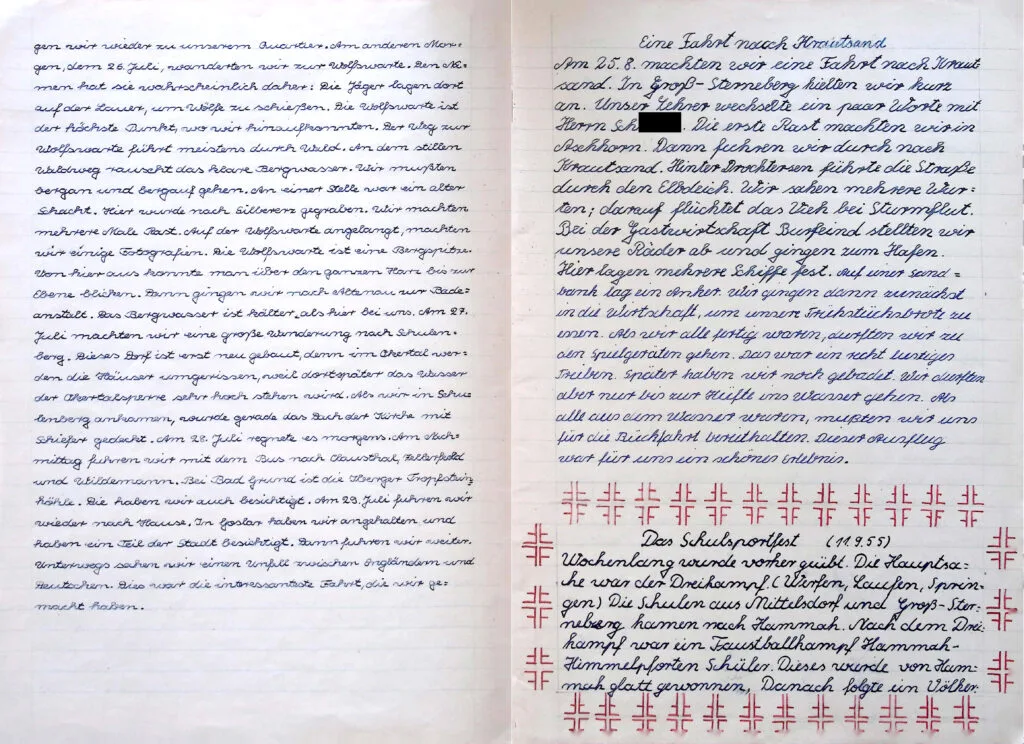 gen wir wieder zu unserem Quartier. Am anderen Mor=
gen, dem 26. Juli, wanderten wir zur Wolfswarte. Den Na=
men hat sie wahrscheinlich daher: Die Jäger lagen dort
auf der Lauer, um Wölfe zu schießen. Die Wolfswarte ist
der höchste Punkt, wo wir hinaufkonnten. Der Weg zur
Wolfswarte führt meistens durch Wald. An dem stillen
Waldweg rauscht das klare Bergwasser. Wir mußten
bergan und bergauf gehen. An einer Stelle war ein alter
Schacht. Hier wurde nach Silbererz gegraben. Wir machten
mehrere Male Rast. Auf der Wolfswarte angelangt, machten
wir einige Fotografien. Die Wolfswarte ist eine Bergspitze.
Von hier aus konnte man über den ganzen Harz bis zur
Ebene blicken. Dann gingen wir nach Altenau zur Bade=
anstalt. Das Bergwasser ist kälter als hier bei uns. Am 27.
Juli machten wir eine große Wanderung nach Schulen=
berg. Dieses Dorf ist erst neu gebaut, denn im Okertal wer=
den die Häuser umgerissen, weil dort später das Wasser
der Okertalsperre sehr hoch stehen wird. Als wir in Schu
lenberg ankamen, wurde gerade das Dach der Kirche mit
Schiefer gedeckt. Am 28. Juli regnete es morgens. Am Nach=
mittag fuhren wir mit dem Bus nach Clausthal, Zellerfeld
und Wildemann. Bei Bad Grund ist die Iberger Tropfstein
höhle. Die haben wir auch besichtigt. Am 29. Juli fuhren wir
wieder nach Hause. In Goslar haben wir angehalten und
haben ein Teil der Stadt besichtigt. Dann fuhren wir weiter.
Unterwegs sahen wir einen Unfall zwischen Engländern und
Deutschen. Dies war die interessanteste Fahrt, die wir ge=
macht haben.
Eine Fahrt nach Krautsand
Am 25.8. machten wir eine Fahrt nach Kraut
sand. In Groß-Sterneberg hielten wir kurz
an. Unser Lehrer wechselte ein paar Worte mit
Herrn Sch . Die erste Rast machten wir in
Aschhorn. Dann fuhren wir durch nach
Krautsand. Hinter Drochtersen führte die Straße
durch den Elbdeich. Wir sahen mehrere Wur=
ten; darauf flüchtet das Vieh bei Sturmflut.
Bei der Gastwirtschaft Burfeind stellten wir
unsere Räder ab und gingen zum Hafen.
Hier lagen mehrere Schiffe fest. Auf einer Sand=
bank lag ein Anker. Wir gingen dann zunächst
in die Wirtschaft, um unsere Frühstücksbrote zu
essen. Als wir alle fertig waren, durften wir zu
den Spielgeräten gehen. Das war ein recht lustiges
Treiben. Später haben wir noch gebadet. Wir durften
aber nur bis zur Hüfte ins Wasser gehen. Als
alle aus dem Wasser waren, mußten wir uns
für die Rückfahrt bereithalten. Dieser Ausflug
war für uns ein schönes Erlebnis.
Das Schulsportfest (11.9.55)
Wochenlang wurde vorher geübt. Die Hauptsa=
che war der Dreikampf (Werfen, Laufen, Sprin=
gen) Die Schulen aus Mittelsdorf und Groß-Ster=
neberg kamen nach Hammah. Nach dem Drei=
kampf war ein Faustballkampf Hammah-
Himmelpforten Schüler. Dieses wurde von Ham=
mah glatt gewonnen, Danach folgte ein Völker=